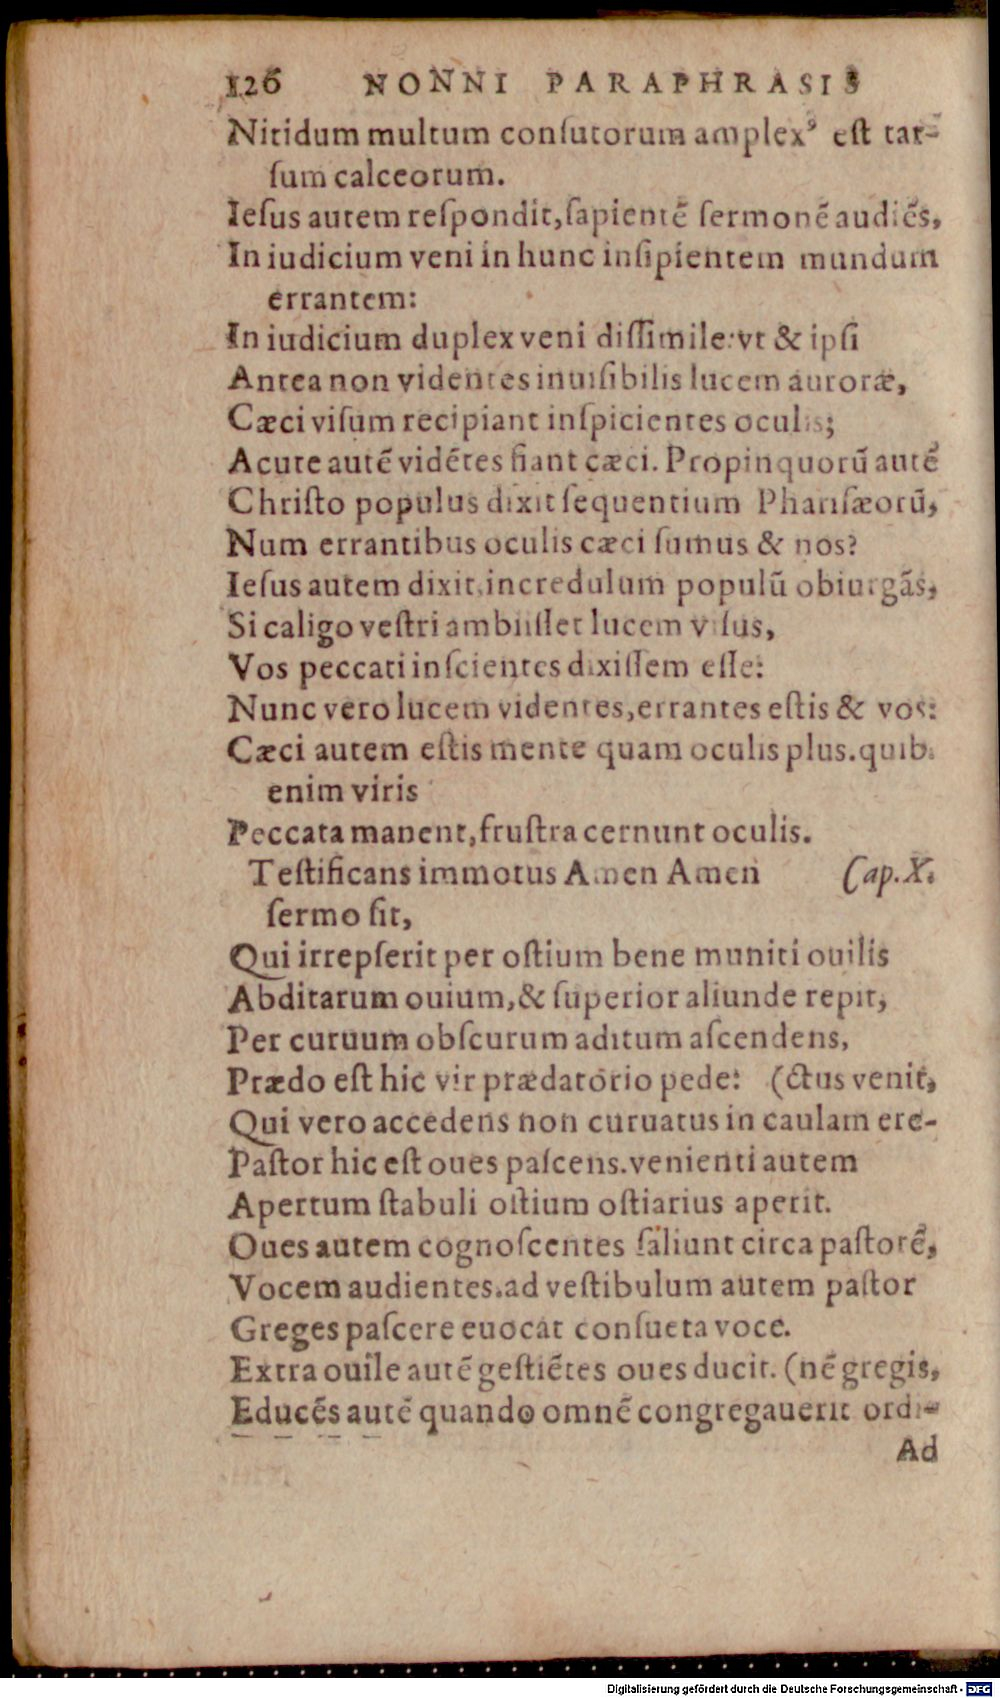 126 NONNI PARAPHRASIS
Nitidum multum conſutorum amplexꝰ eſt tar-
ſum calceorum.
Ieſus autem reſpondit, ſapientē ſermonē audiēs,
In iudicium veni in hunc inſipientem mundum
errantem:
In iudicium duplex veni diſſimile: vt & ipſi
Antea non videntes inuiſibilis lucem auroræ,
Cæci viſum recipiant inſpicientes oculis;
Acute autē vidētes fiant cæci. Propinquorū autē
Chriſto populus dixit ſequentium Phariſæorū,
Num errantibus oculis cæci ſumus & nos?
Ieſus autem dixit, incredulum populū obiurgās,
Si caligo veſtri ambiiſſet lucem viſus,
Vos peccati inſcientes dixiſſem eſſe:
Nunc vero lucem videntes, errantes eſtis & vos:
Cæci autem eſtis mente quam oculis plus. quib.
enim viris
Peccata manent, fruſtra cernunt oculis.
Teſtificans immotus Amen Amen Cap. X.
ſermo ſit,
Qui irrepſerit per oſtium bene muniti ouilis
Abditarum ouium, & ſuperior aliunde repit,
Per curuum obſcurum aditum aſcendens,
Prædo eſt hic vir prædatorio pede: (ctus venit,
Qui vero accedens non curuatus in caulam ere-
Paſtor hic eſt oues paſcens. venienti autem
Apertum ſtabuli oſtium oſtiarius aperit.
Oues autem cognoſcentes ſaliunt circa paſtorē,
Vocem audientes. ad veſtibulum autem paſtor
Greges paſcere euocat conſueta voce.
Extra ouile autē geſtiētes oues ducit. (nē gregis,
Educēs autē quando omnē congregauerit ordi-
Ad
Digitalisierung gefördert durch die Deutsche Forschungsgemeinschaft - DFG